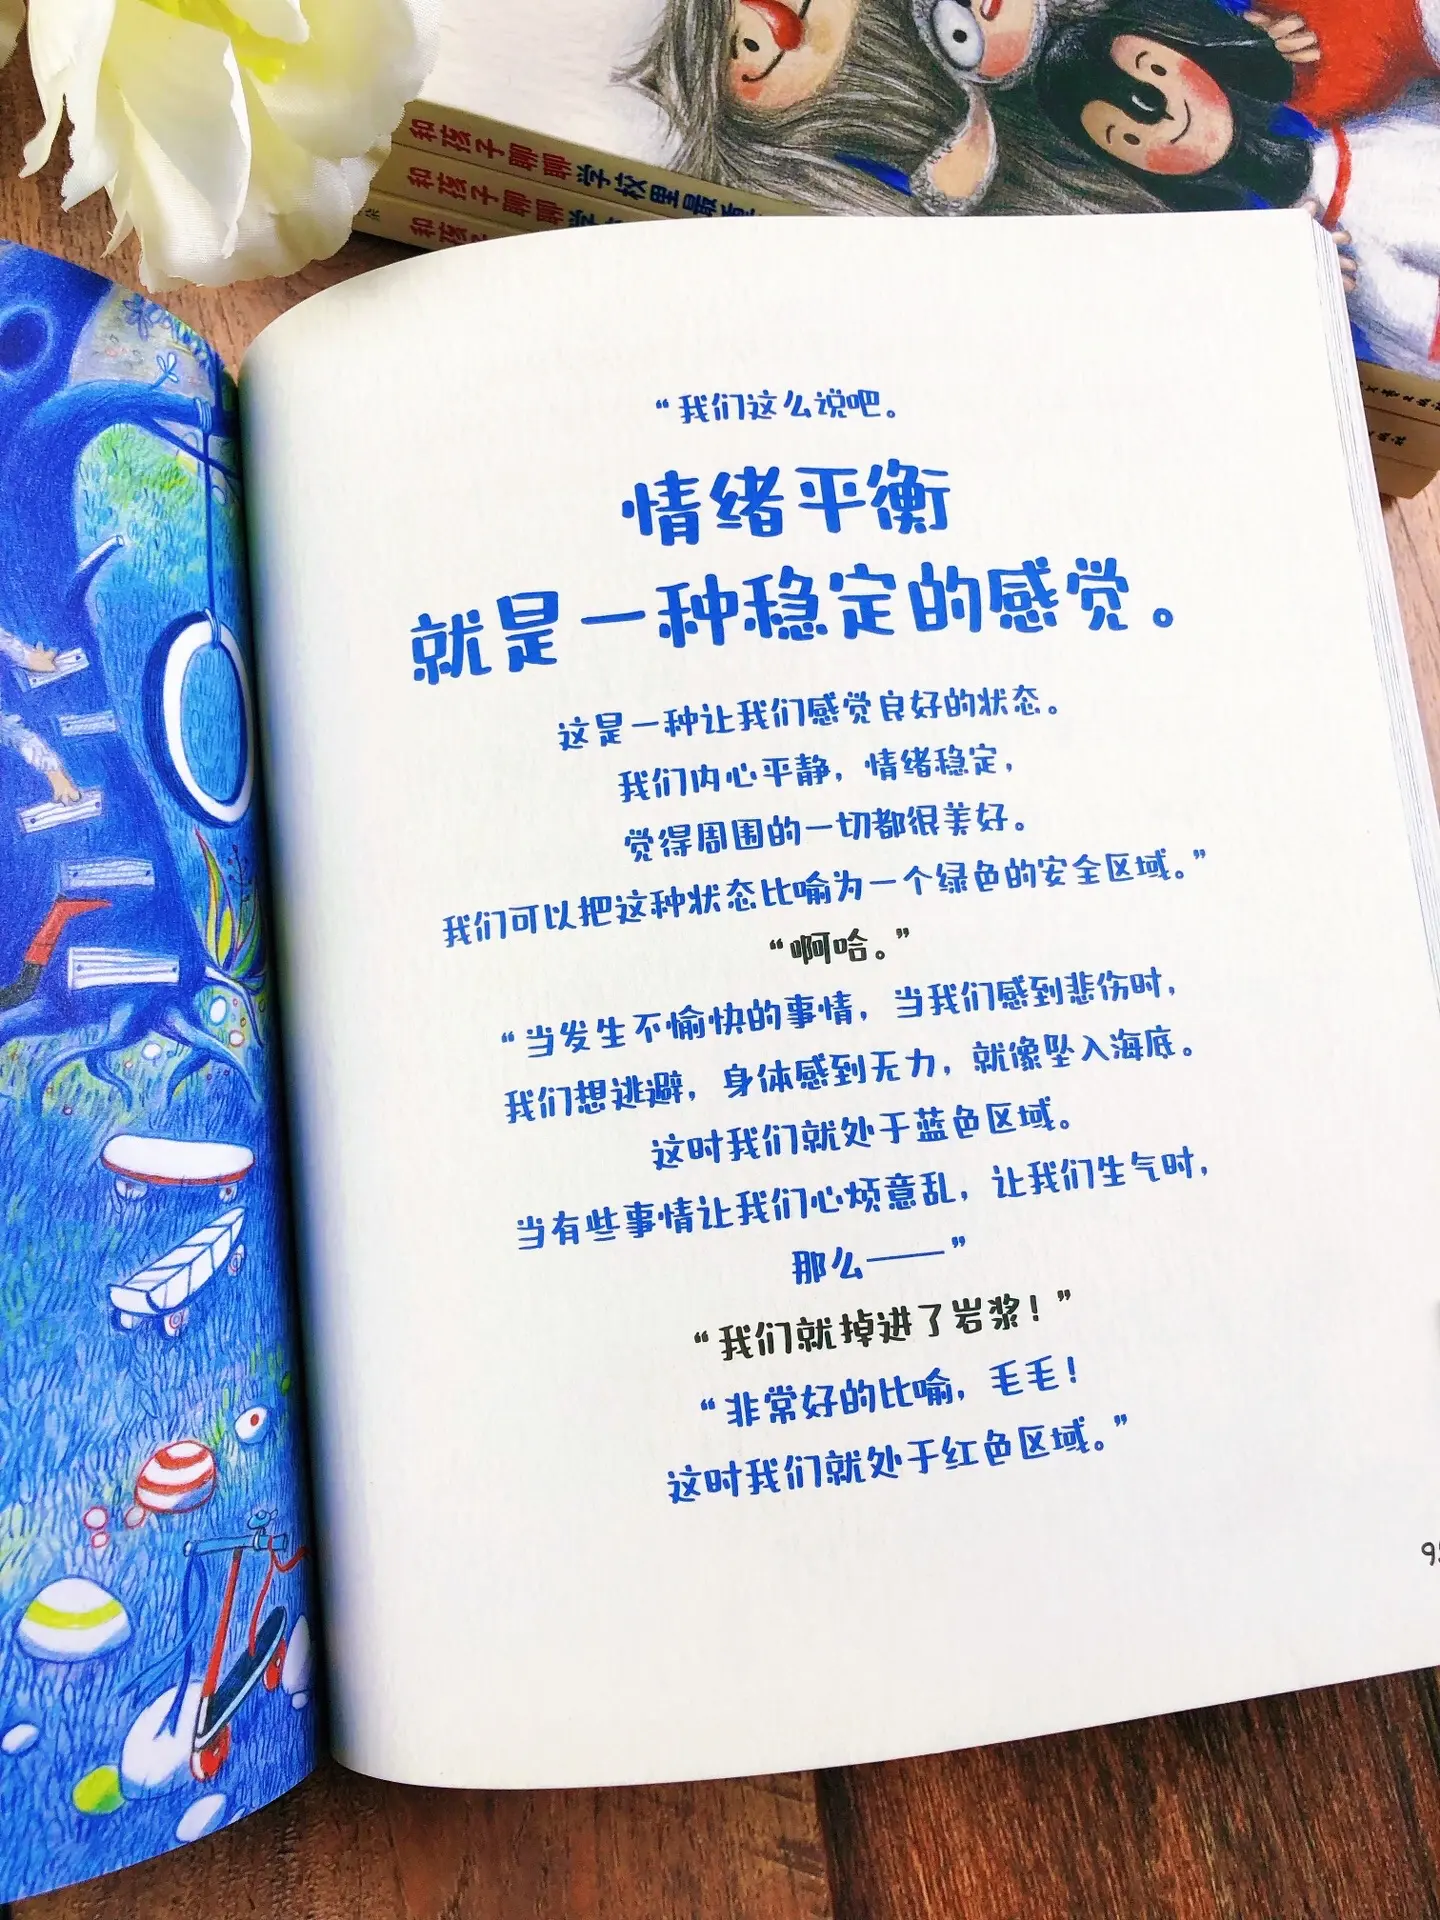 和孩子聊聊学校里最
和孩子聊聊学
和孩子
“我们这么说吧。
情绪平衡
就是一种稳定的感觉。
这是一种让我们感觉良好的状态。
我们内心平静，情绪稳定，
觉得周围的一切都很美好。
我们可以把这种状态比喻为一个绿色的安全区域。”
“啊哈。”
“当发生不愉快的事情，当我们感到悲伤时，
我们想逃避，身体感到无力，就像坠入海底。
这时我们就处于蓝色区域。
当有些事情让我们心烦意乱，让我们生气时，
那么——”
“我们就掉进了岩浆！”
“非常好的比喻，毛毛！
这时我们就处于红色区域。”